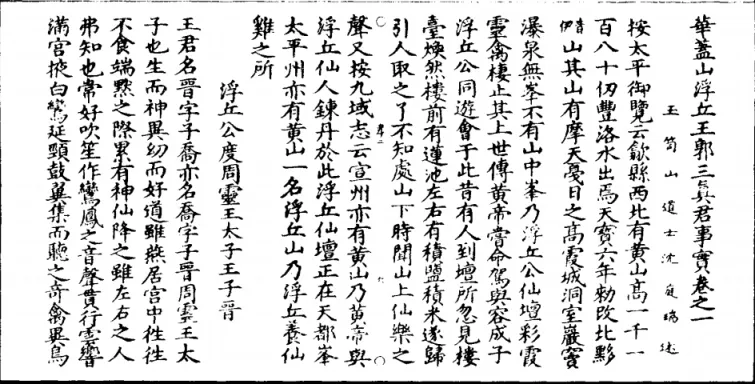 華蓋山浮丘王郭三真君事實卷之一
玉笥山道士沈庭瑞述
按太平御覽云歙縣西北有黄山高一千一
百八十仞豐洛水出焉天寶六年勅改北黟
山其山有摩天戛日之高霞城洞室巖竇
瀑泉無峯不有山中峯乃浮丘公仙壇彩霞
靈禽棲止其上世傳黄帝嘗命駕與容成子
浮丘公同遊會于此昔有人到壇所忽見樓
臺煥然樓前有蓮池左右有積鹽積米遂歸
引人取之了不知處山下時聞山上仙樂之
聲又按九域志云宣州亦有黄山乃黄帝與
浮丘仙人鍊丹於此浮丘仙壇正在天都峯
太平州亦有黄山一名浮丘山乃浮丘養仙
雞之所
浮丘公度周靈王太子王子晉
王君名晉字子喬亦名喬字子晉周靈王太
子也生而神異幼而好道雖燕居宮中往往
不食端黙之際累有神仙降之雖左右之人
弗知也常好吹笙作鸞鳳之音聲貫行雲響
滿宮掖白鸞延頸鼓翼集而聽之奇禽異鳥